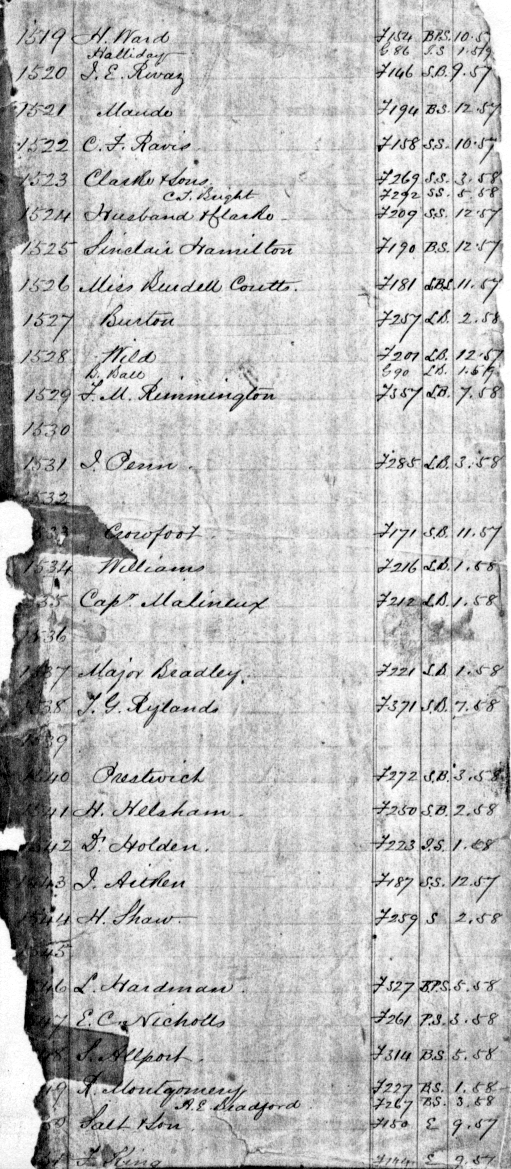 1519 H. Ward F154 B.P.S. 10.57
Halliday G86 I.S 1.59
1520 J. E. Rivaz F146 S.B. 9.57
1521 Maude F194 B.S. 12.57
1522 C. F. Ravis F158 S.S. 10.57
1523 Clarke & Sons F269 S.S. 3.58
C. T. Bright F292 S.S. 5.58
1524 Husband & Clarke F209 S.S. 12.57
1525 Sinclair Hamilton F190 B.S. 12.57
1526 Miss Burdell Coutts. F181 11.57
1527 Burton F257 L.B. 2.58
1528 Wild F201 L.B. 12.57
Ball G90 L.B.
1529 F. M. Rimmington F357 L.B. 7.58
1530
1531 J. Penn. F285 L.B. 3.58
1532
33 Crowfoot. F171 S.B. 11.57
1534 Williams F216 L.B. 1.58
35 Capn. Malineux F212 L.B. 1.58
1536
37 Major Bradley. F221 S.B. 1.58
38 T. G. Rylands F371 S.B. 7.58
39
40 Prestwich F272 S.B. 3.58
41 H. Helsham F250 S.B. 2.58
42 Dr. Holden. F223 I.S. 1.58
43 J. Aitken F187 S.S. 12.57
44 H. Shaw F259 S 2.58
45
46 L. Hardman. F327 B.P.S. 5.58
47 E. C. Nicholls F261 P.S. 3.58
48 S. Allport. F314 B.S. 5.58
49 R. Montgomery F227 B.S. 1.58
A. E. Bradford F267 B.S. 3.58
Salt & Son F150 E 9.57
King F144 E 9.57